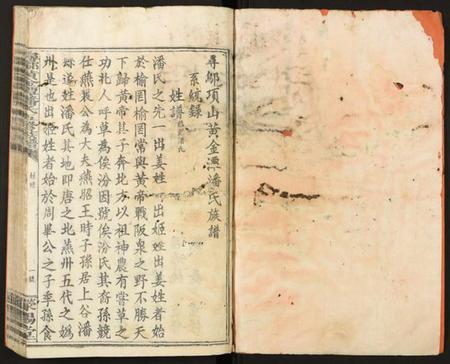 尋鄔項山黃金潭潘氏族譜
系統錄
姓譜
潘氏之先一出姜姓一出姬姓出姜姓者始
於榆罔榆罔常與黃帝戰阪泉之野不勝天
下歸黃帝其子奔北方以祖神農有嘗草之
功北人呼草為俟汾因號俟汾氏其裔孫競
仕燕襄公為大夫燕昭王時子孫居上谷潘
縣遂姓潘氏其地即唐之北燕州五代之媯
州是也出姬姓者始於周畢公之子季孫食